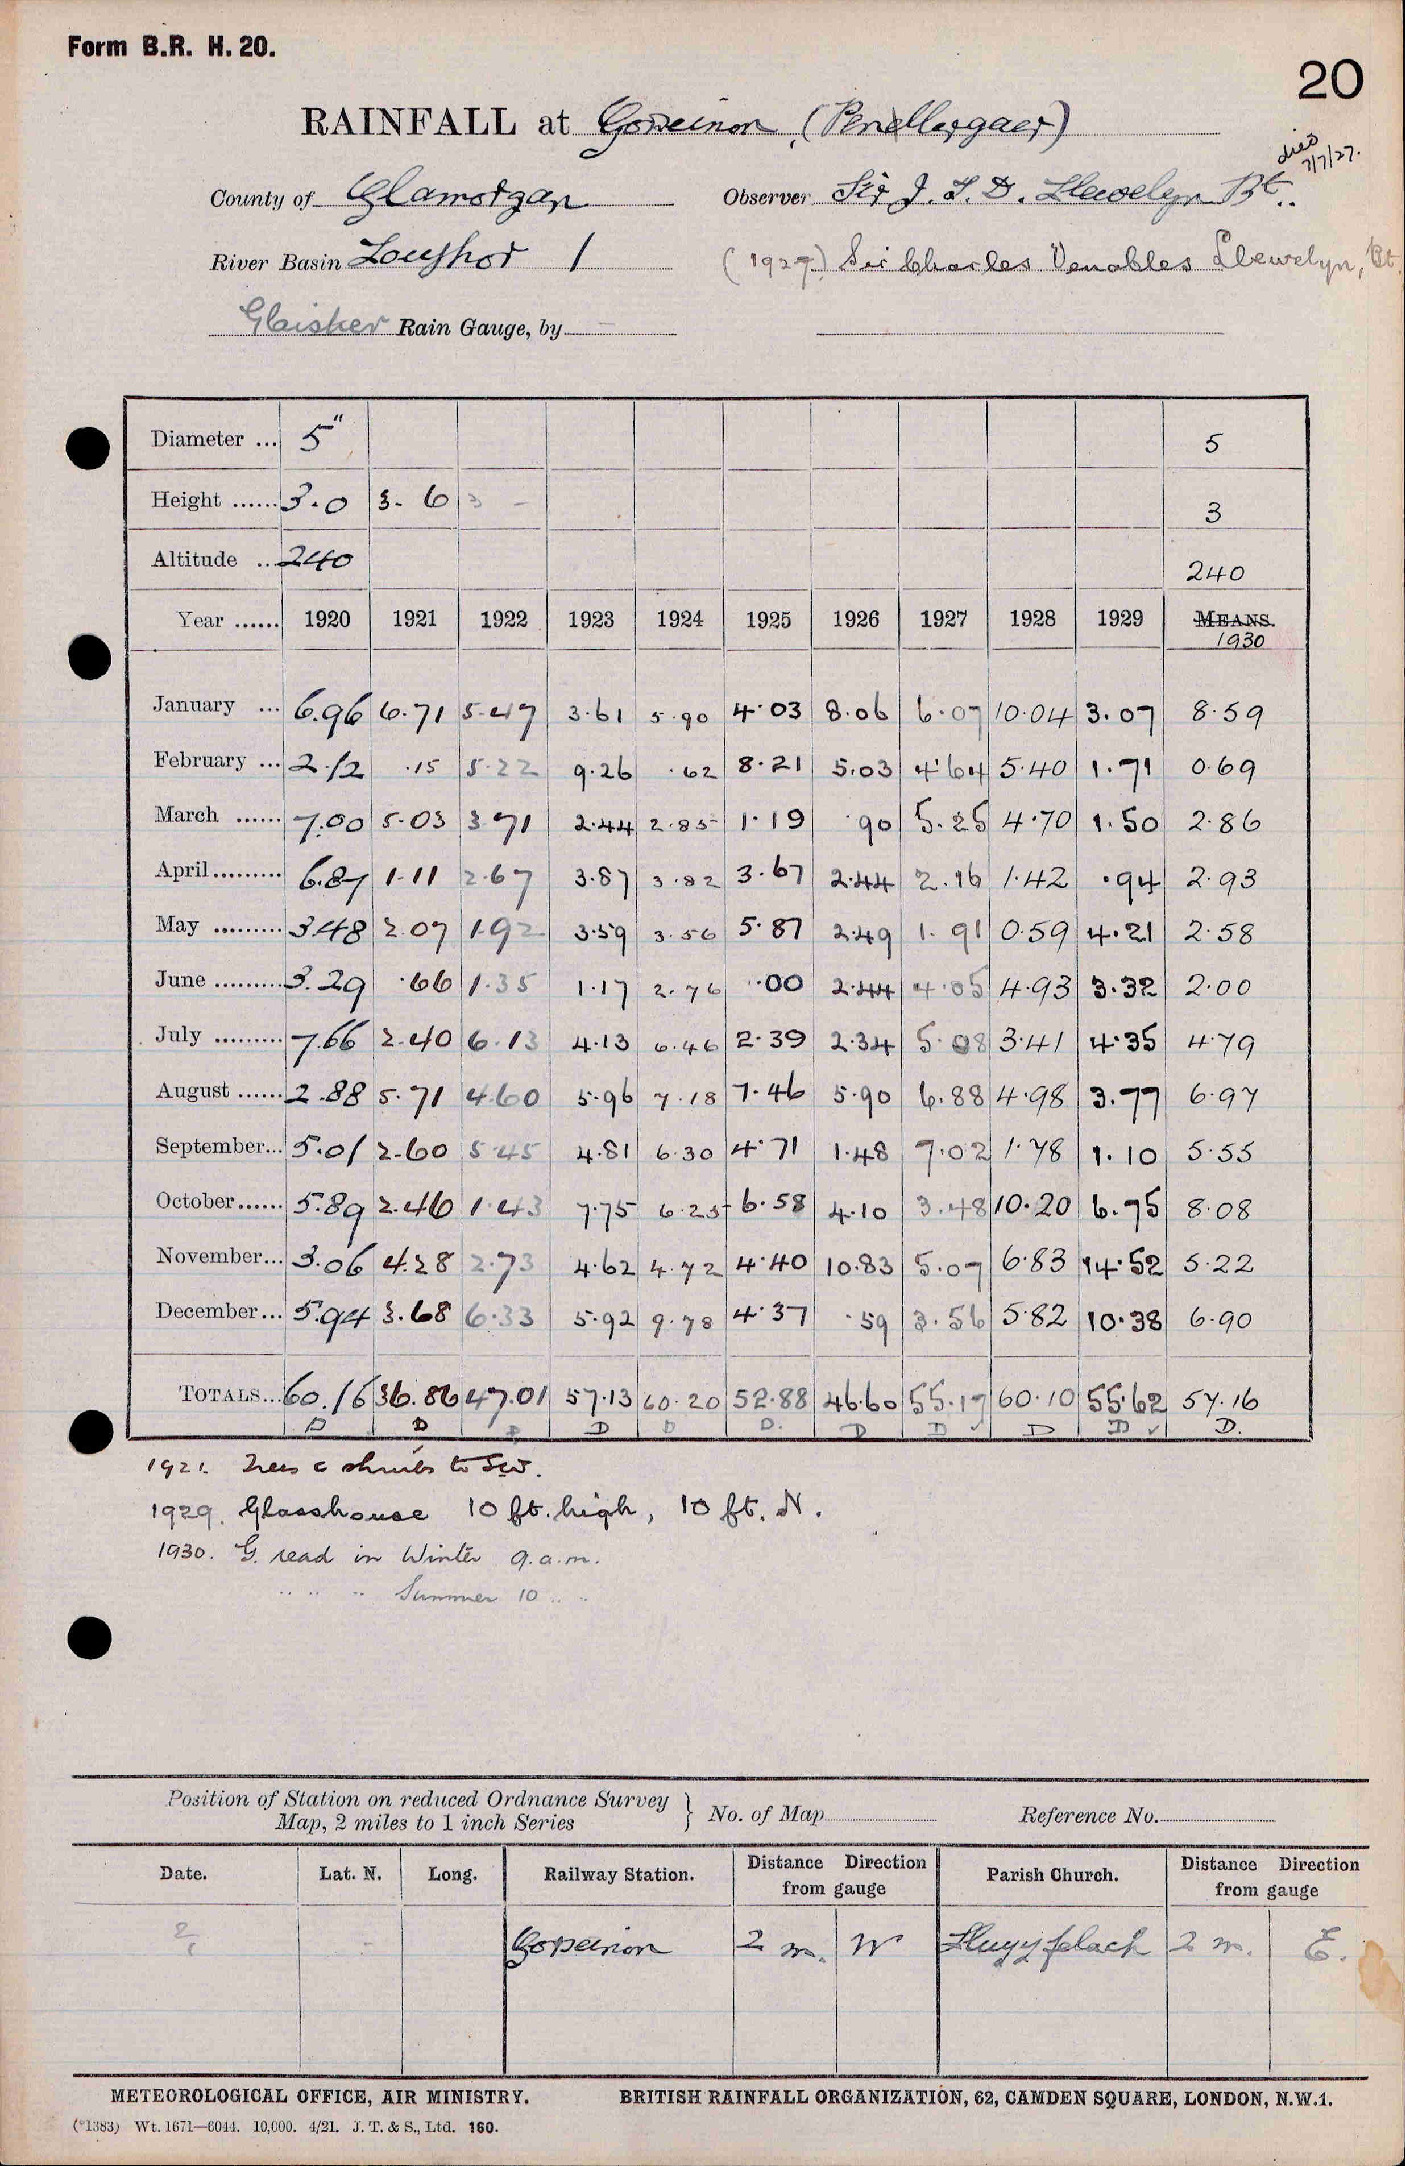 Form B.R. H. 20.
20
RAINFALL at Gowerinon, (Penllergaer)
died 7/7/27.
County of Glamorgan Observer Sir J. T. D. Llewelyn Bt.
River Basin Loughor 1 (1927) Sir Charles Venables Llewelyn, Bt.
Glaisher Rain Gauge, by
Diameter ... 5" 5
Height ...... 3.0 3. 6 3 - 3
Altitude .. 240 240
Year ...... 1920 1921 1922 1923 1924 1925 1926 1927 1928 1929 MEANS.
1930
January ... 6.96 6.71 5.47 3.61 5.90 4.03 8.06 6.07 10.04 3.07 8.59
February ... 2.12 .15 5.22 9.26 .62 8.21 5.03 4.64 5.40 1.71 0.69
March ...... 7.00 5.03 3.71 2.44 2.85 1.19 .90 5.25 4.70 1.50 2.86
April ......... 6.87 1.11 2.67 3.87 3.82 3.67 2.44 2.16 1.42 .94 2.93
May ......... 3.48 2.07 1.92 3.59 3.56 5.87 2.49 1.91 0.59 4.21 2.58
June ......... 3.29 .66 1.35 1.17 2.76 .00 2.44 4.05 4.93 3.32 2.00
July ......... 7.66 2.40 6.13 4.13 6.46 2.39 2.34 5.08 3.41 4.35 4.79
August ...... 2.88 5.71 4.60 5.96 7.18 7.46 5.90 6.88 4.98 3.77 6.97
September... 5.01 2.60 5.45 4.81 6.30 4.71 1.48 7.02 1.78 1.10 5.55
October...... 5.89 2.46 1.43 7.75 6.25 6.58 4.10 3.48 10.20 6.75 8.08
November... 3.06 4.28 2.73 4.62 4.72 4.40 10.83 5.07 6.83 14.52 5.22
December... 5.94 3.68 6.33 5.92 9.78 4.37 .59 3.56 5.82 10.38 6.90
TOTALS... 60.16 36.86 47.01 57.13 60.20 52.88 46.60 55.17 60.10 55.62 57.16
D D D D D D. D D ✓ D D ✓ D.
1921. Trees & shrubs to SW.
1929. Glasshouse 10 ft. high, 10 ft. N.
1930. G. read in Winter 9.a.m.
" " " Summer 10 " "
Position of Station on reduced Ordnance Survey
Map, 2 miles to 1 inch Series } No. of Map Reference No.
Date. Lat. N. Long. Railway Station. Distance Direction from gauge Parish Church. Distance Direction from gauge
2 m. W 2 m. E.
METEOROLOGICAL OFFICE, AIR MINISTRY. BRITISH RAINFALL ORGANIZATION, 62, CAMDEN SQUARE, LONDON, N.W.1.
(*1383) Wt. 1671—6044. 10,000. 4/21. J. T. & S., Ltd. 160.